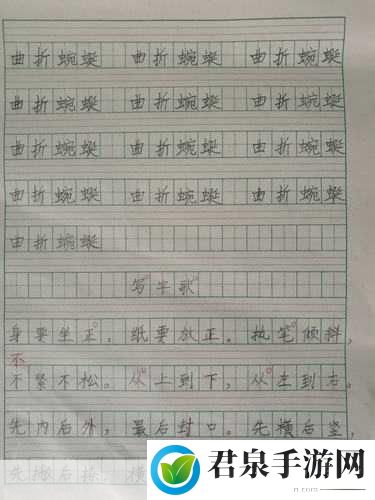 曲折蜿蜒 曲折蜿蜒 曲折蜿蜒
曲折蜿蜒 曲折蜿蜒 曲折蜿蜒
曲折蜿蜒 曲折蜿蜒 曲折蜿蜒
曲折蜿蜒 曲折蜿蜒 曲折蜿蜒
曲折蜿蜒
写字歌
身要坐正。纸要放正。执笔倾斜,
不
不紧不松。从上到下,从左到右。
先内后外,最后封口。先横后竖,
先撇后捺,横
君泉手游网